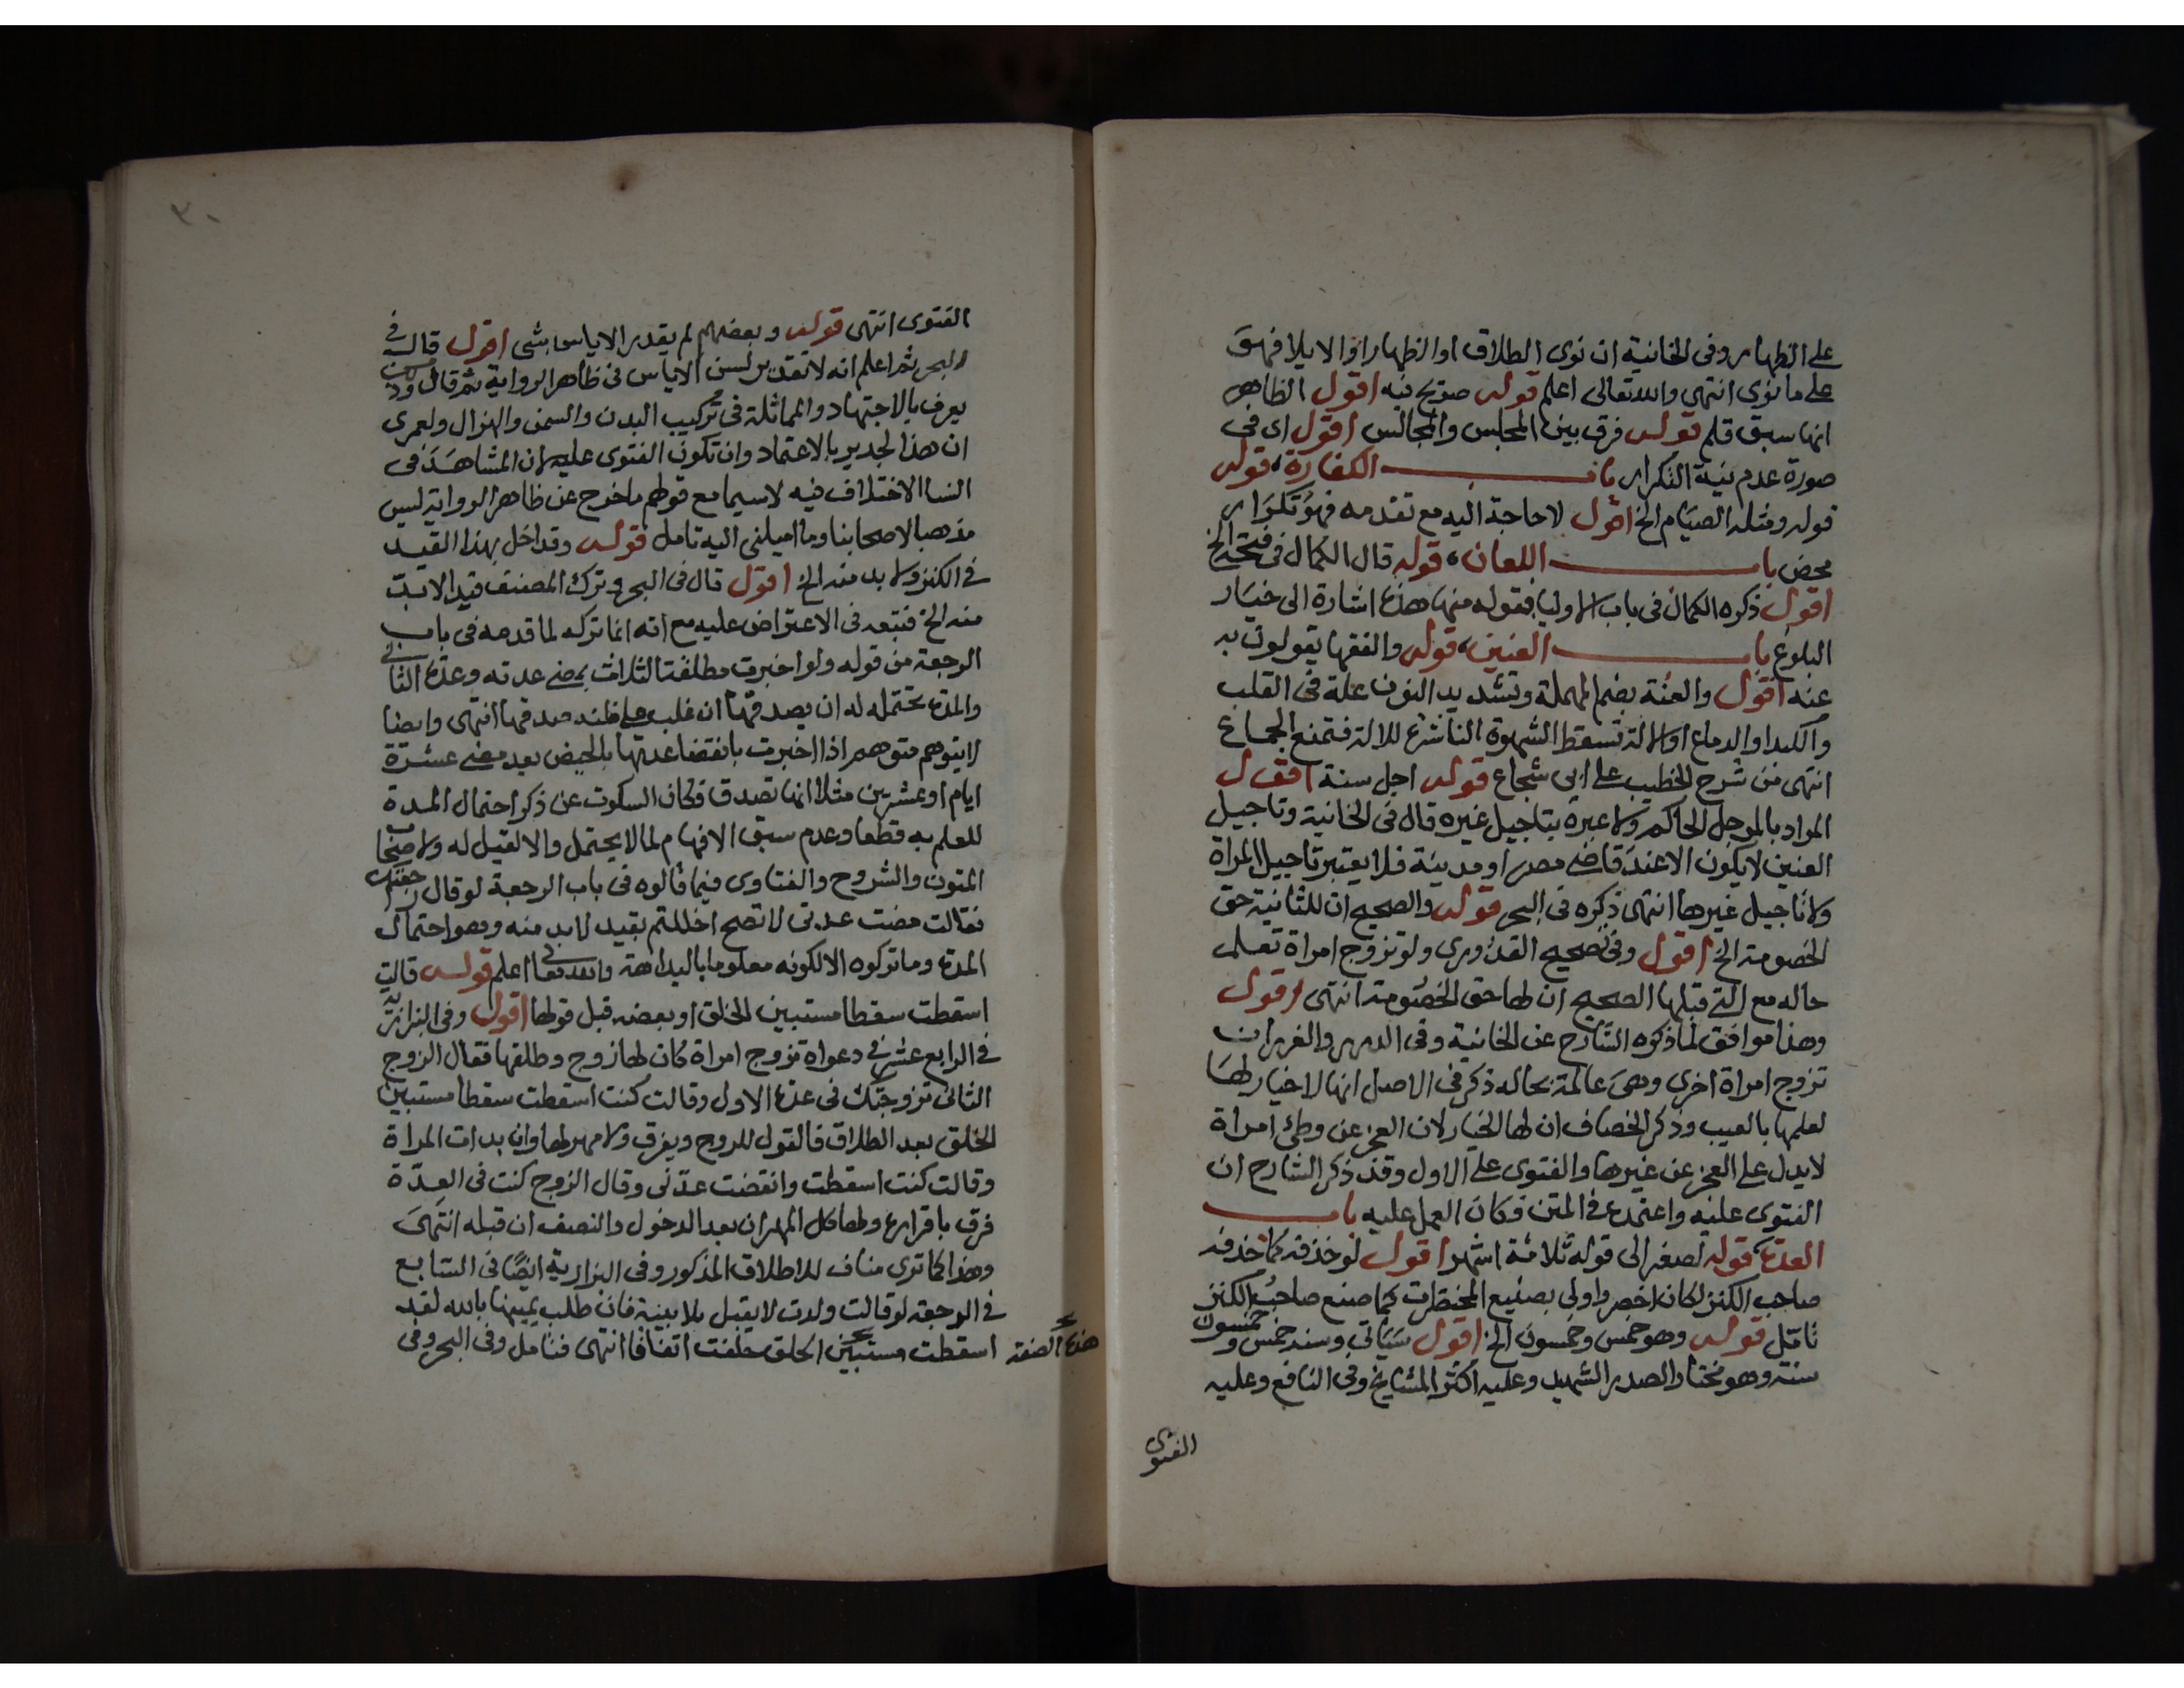 على الظهار وفى الخانية ان نوى الطلاق او الظهار او الايلا فهو
على ما نوى انتهى والله تعالى اعلم قوله صريح فيه اقول الظاهر
انها سبق قلم قوله فرق بين المجلس والمجالس اقول اى فى
صورة عدم نية التكرار باب الكفارة، قوله
قوله ومثله الصيام الخ اقول لا حاجة اليه مع تقدمه فهو تكرار
محض باب اللعان، قوله قال الكمال فى فتحه الخ
اقول ذكره الكمال فى باب الاوليا فقوله منها هذه اشارة الى خيار
البلوغ باب العنين، قوله والفقها يقولون به
عنه اقول والعنة بضم المهملة وتشديد النون علة فى القلب
والكبد او الدماغ او الالة تسقط الشهوة الناشرة للالة فتمنع الجماع
انتهى من شرح الخطيب على ابي شجاع قوله اجل سنة اقول
المراد بالموجل الحاكم ولا عبرة بتاجيل غيره قال فى الخانية وتاجيل
العنين لا يكون الا عند قاضى مصر او مدينة فلا يعتبر تاجيل المراة
ولا تاجيل غيرها انتهى ذكره فى البحر قوله والصحيح ان للثانية حق
الخصومة الخ اقول وفى تصحيح القدورى ولو تزوج امراة تعلم
حاله مع التى قبلها الصحيح ان لها حق الخصومة انتهى اقول
وهذا موافق لما ذكره الشارح عن الخانية وفى الدرر والغرر ان
تزوج امراة اخرى وهى عالمة بحاله ذكر فى الاصل انها لا خيار لها
لعلمها بالعيب وذكر الخصاف ان لها الخيار لان العجز عن وطئ امراة
لا يدل على العجز عن غيرها والفتوى على الاول وقد ذكر الشارح ان
الفتوى عليه واعتمده فى المتن فكان العمل عليه باب
العدة، قوله لصغر الى قوله ثلاثة اشهر اقول لو حذفه كما حذفه
صاحب الكنز لكان اخصر واولى بصنيع المختصرات كما صنع صاحب الكنز
تامل قوله وهو خمس وخمسون الخ اقول سياتى وسنه خمس وخمسون
سنة وهو مختار الصدر الشهيد وعليه اكثر المشايخ وفى النافع وعليه
الفتوى
٣٠
الفتوى انتهى قوله وبعضهم لم يقدر الاياس بشى اقول قال فى
البحر ثم اعلم انه لا تقدير لسن الاياس فى ظاهر الرواية ثم قال
يعرف بالاجتهاد والمماثلة فى تركيب البدن والسمن والهزال ولعمرى
ان هذا لجدير بالاعتماد وان تكون الفتوى عليه لان المشاهد فى
النسا الاختلاف فيه لا سيما مع قولهم ما خرج عن ظاهر الرواية ليس
مذهبا لاصحابنا وما اميلنى اليه تامل قوله وقد اخل بهذا القيد
فى الكنز ولا بد منه الخ اقول قال فى البحر وترك المصنف قيد الابد
منه الخ فتبعه فى الاعتراض عليه مع انه انما تركه لما قدمه فى باب
الرجعة من قوله ولو اخبرت مطلقة الثلاث بمضى عدته وعدة الثانى
والمدة تحتمله له ان يصدقها ان غلب على ظنه صدقها انتهى وايضا
لا يتوهم متوهم اذا اخبرت بانقضا عدتها بالحيض بعد مضى عشرة
ايام او عشرين مثلا انها تصدق فكان السكوت عن ذكر احتمال المدة
للعلم به قطعا وعدم سبق الافهام لما لا يحتمل والا لقيل له ولاصحاب
المتون والشروح والفتاوى فيما قالوه فى باب الرجعة لو قال راجعتك
فقالت مضت عدتى لا تصح اخللتم بقيد لا بد منه وهو احتمال
المدة وما تركوه الا لكونه معلوما بالبداهة والله تعالى اعلم قوله قالت
اسقطت سقطا مستبين الخلق او بعضه قبل قولها اقول وفى البزازية
فى الرابع عشر فى دعواه تزوج امراة كان لها زوج وطلقها فقال الزوج
الثانى تزوجتك فى عدة الاول وقالت كنت اسقطت سقطا مستبين
الخلق بعد الطلاق فالقول للزوج ويفرق ولا مهر لها وان بدات المراة
وقالت كنت اسقطت وانقضت عدتى وقال الزوج كنت فى العدة
فرق باقراره ولها كل المهر ان بعد الدخول والنصف ان قبله انتهى
وهذا كما ترى مناف للاطلاق المذكور وفى البزازية ايضا فى السابع
فى الرجعة لو قالت ولدت لا يقبل بلا بينة فان طلب يمينها بالله لقد
اسقطت مستبين الخلق حلفت اتفاقا انتهى فتامل وفى البحر وفى
هذه الصفة